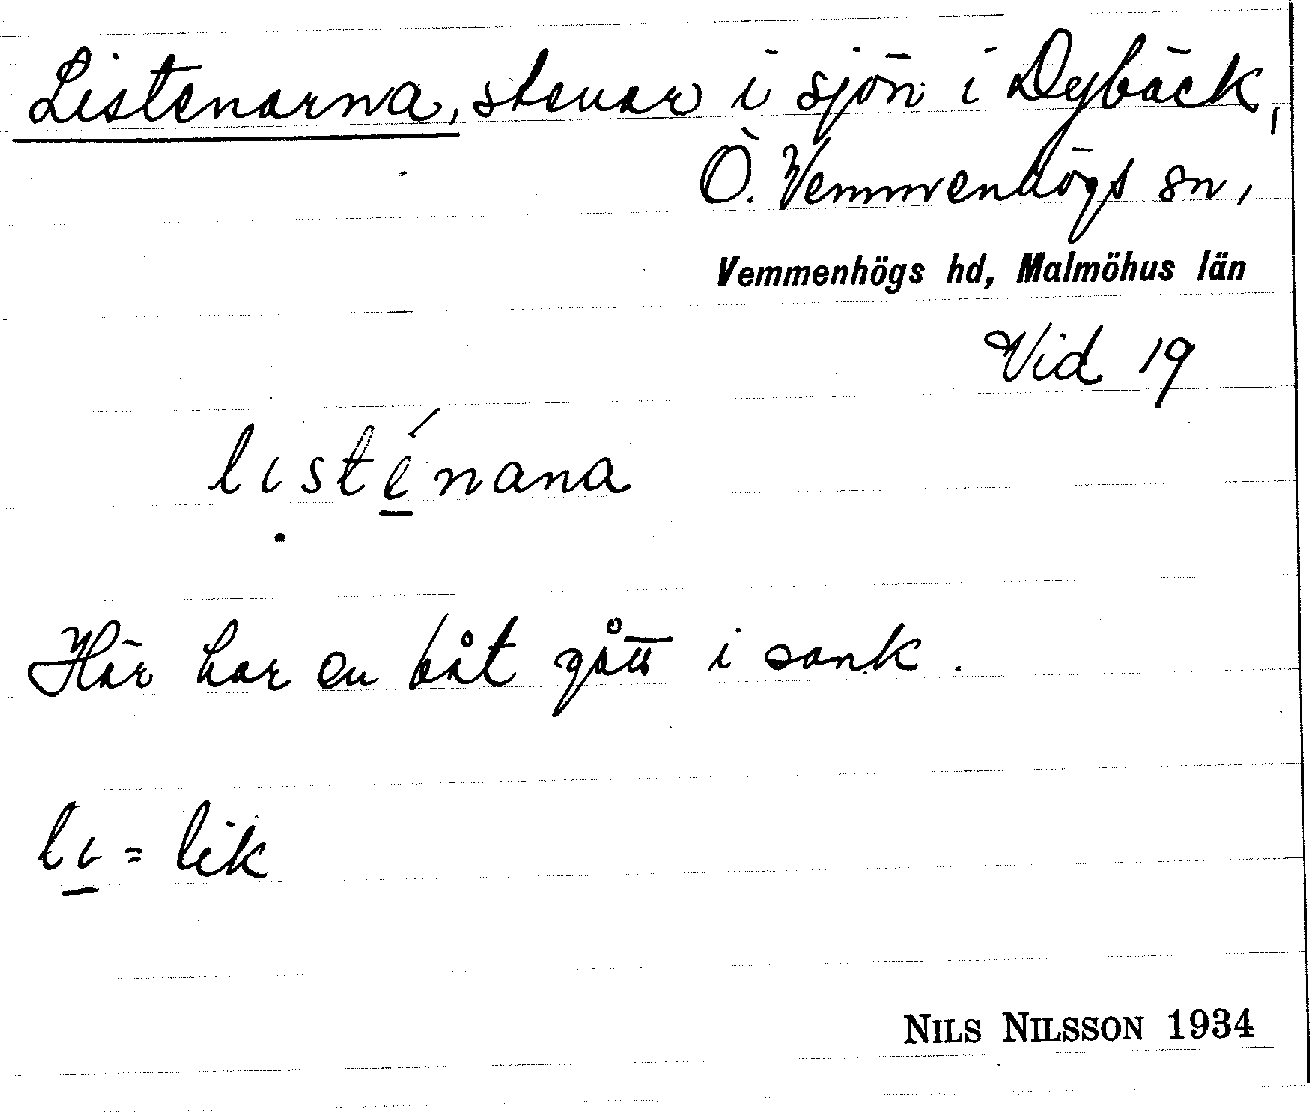 Listenarna, stenar i sjön i Dybäck,
Ö. Vemmenhögs sn,
Vemmenhögs hd, Malmöhus län
Vid 19
lısténana
Här har en båt gått i sank.
lı = lik
NILS NILSSON 1934